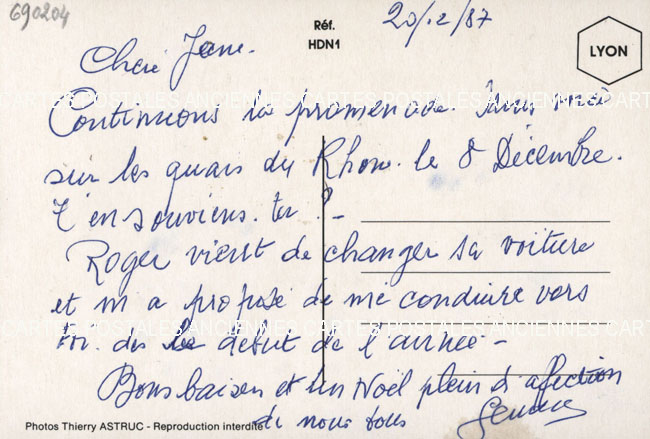 690204
Réf.
HDN1
20/12/87
LYON
Chère Jeane.
CARTES POSTALES ANCIENNES CARTES POSTALES ANCIENNES CARTES
Continuons la promenade.
sur les quais du Rhone. le 8 Décembre.
T'en souviens-tu ?-
Roger vient de changer sa voiture
et m'a proposé de me conduire vers
toi. dès le début de l'année-
CARTES POSTALES ANCIENNES CARTES POSTALES ANCIENNES CARTES
Bons baisers et un Noël plein d'affection
de nous tous
Photos Thierry ASTRUC - Reproduction interdite